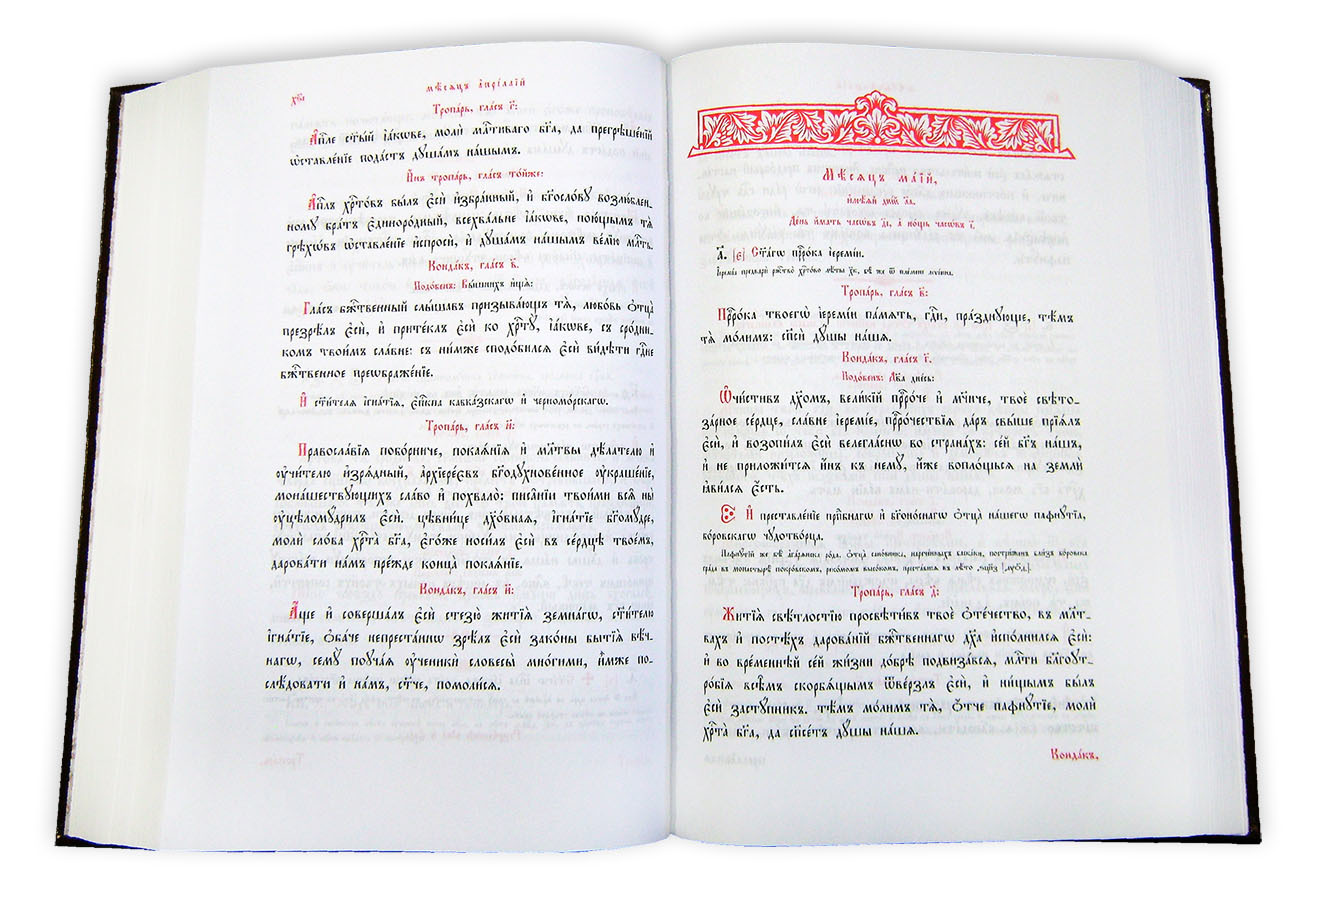 мѣсяцъ а҆прі́ллїй
Тропа́рь, гла́съ г҃:
А҆п҃ле ст҃ы́й і҆а́кѡве, молѝ млⷭ҇тиваго бг҃а, да прегрѣше́нїй
ѡ҆ставле́нїе пода́стъ дꙋша́мъ на́шымъ.
И҆́нъ тропа́рь, гла́съ то́йже:
А҆п҃лъ хрⷭ҇то́въ бы́лъ є҆сѝ и҆збра́нный, и҆ бг҃осло́вꙋ возлю́блен-
номꙋ бра́тъ є҆диноро́дный, всехва́льне і҆а́кѡве, пою́щымъ тѧ̀
грѣхѡ́въ ѡ҆ставле́нїе и҆спросѝ, и҆ дꙋша́мъ на́шымъ ве́лїю млⷭ҇ть.
Конда́къ, гла́съ в҃.
Подо́бенъ: Вы́шнихъ и҆щѧ̀:
Гла́съ бжⷭ҇твенный слы́шавъ призыва́ющъ тѧ̀, любо́вь ѻ҆тца̀
презрѣ́лъ є҆сѝ, и҆ прите́клъ є҆сѝ ко хрⷭ҇тꙋ̀, і҆а́кѡве, съ сро́дни-
комъ твои́мъ сла́вне: съ ни́мже сподо́билсѧ є҆сѝ ви́дѣти гдⷭ҇не
бжⷭ҇твенное преѡбраже́нїе.
И҆ ст҃и́телѧ і҆гна́тїѧ, є҆пⷭ҇кпа кавка́зскагѡ и҆ черномо́рскагѡ.
Тропа́рь, гла́съ и҃:
Правосла́вїѧ побо́рниче, покаѧ́нїѧ и҆ мл҃твы дѣ́лателю и҆
ᲂу҆чи́телю и҆зрѧ́дный, а҆рхїере́євъ бг҃одꙋхнове́нное ᲂу҆краше́нїе,
мона́шествꙋющихъ сла́во и҆ похвало̀: писа́нїи твои́ми всѧ̑ ны̀
ᲂу҆цѣломꙋ́дрилъ є҆сѝ. цѣвни́це дꙋхо́внаѧ, і҆гна́тїе бг҃омꙋ́дре,
молѝ сло́ва хрⷭ҇та̀ бг҃а, є҆го́же носи́лъ є҆сѝ въ се́рдцѣ твое́мъ,
дарова́ти на́мъ пре́жде конца̀ покаѧ́нїе.
Конда́къ, гла́съ и҃:
А҆́ще и҆ соверша́лъ є҆сѝ стезю̀ житїѧ̀ земна́гѡ, ст҃и́телю
і҆гна́тїе, ѻ҆ба́че непреста́ннѡ зрѣ́лъ є҆сѝ зако́ны бытїѧ̀ вѣ́ч-
нагѡ, семꙋ̀ поꙋча́ѧ ᲂу҆ченикѝ словесы̀ мно́гими, и҆̀мже по-
слѣ́довати и҆ на́мъ, ст҃че, помоли́сѧ.
Мѣ́сѧцъ ма́їй,
и҆мѣ́ѧй дні́й л҃а.
Де́нь и҆́мать часѡ́въ д҃і, а҆ но́щь часѡ́въ і҃.
а҃. [є҃] Ст҃а́гѡ прⷪ҇ро́ка і҆еремі́и.
Тропа́рь, гла́съ в҃:
Прⷪ҇ро́ка твоегѡ̀ і҆еремі́и па́мѧть, гдⷭ҇и, пра́зднꙋюще, тѣ́мъ
тѧ̀ мо́лимъ: сп҃сѝ дꙋ́шы на́шѧ.
Конда́къ, гла́съ г҃.
Подо́бенъ: Дв҃а дне́сь:
Ѡ҆чи́стивъ дꙋ́хомъ, вели́кїй прⷪ҇ро́че и҆ мч҃нче, твоѐ свѣто-
за́рное се́рдце, сла́вне і҆еремі́е, прⷪ҇ро́чествїѧ да́ръ свы́ше прїѧ́лъ
є҆сѝ, и҆ возопи́лъ є҆сѝ велегла́снѡ во страна́хъ: се́й бг҃ъ на́шъ,
и҆ не приложи́тсѧ и҆́нъ къ немꙋ̀, и҆́же вопло́щьсѧ на землѝ
ꙗ҆ви́лсѧ є҆́сть.
И҆ преставле́нїе прпⷣбнагѡ и҆ бг҃оно́снагѡ ѻ҆тца̀ на́шегѡ пафнꙋ́тїѧ,
бо́ровскагѡ чꙋдотво́рца.
Пафнꙋ́тїй же бѣ̀ а҆га́рѧнска ро́да, ѻ҆тца̀ сано́вника, нарече́нныхъ баска́ки, постри́женъ бли́зъ бо́ровска
гра́да въ монастырѣ̀ покро́вскомъ, реко́момъ высо́комъ, преста́висѧ въ лѣ́то
Тропа́рь, гла́съ д҃:
Житїѧ̀ свѣ́тлостїю просвѣти́въ твоѐ ѻ҆те́чество, въ мл҃т-
вахъ и҆ постѣ́хъ дарова́нїй бжⷭ҇твеннагѡ дх҃а и҆спо́лнилсѧ є҆сѝ:
и҆ во вре́меннѣй се́й жи́зни до́брѣ подвиза́всѧ, млⷭ҇ти бл҃гоꙋт-
ро́бїѧ всѣ́мъ скорбѧ́щымъ ѿве́рзлъ є҆сѝ, и҆ ни́щымъ бы́лъ
є҆сѝ застꙋ́пникъ. тѣ́мъ мо́лимъ тѧ̀, ѻ҆́тче пафнꙋ́тїе, молѝ
хрⷭ҇та̀ бг҃а, да сп҃се́тъ дꙋ́шы на́шѧ.
Конда́къ,